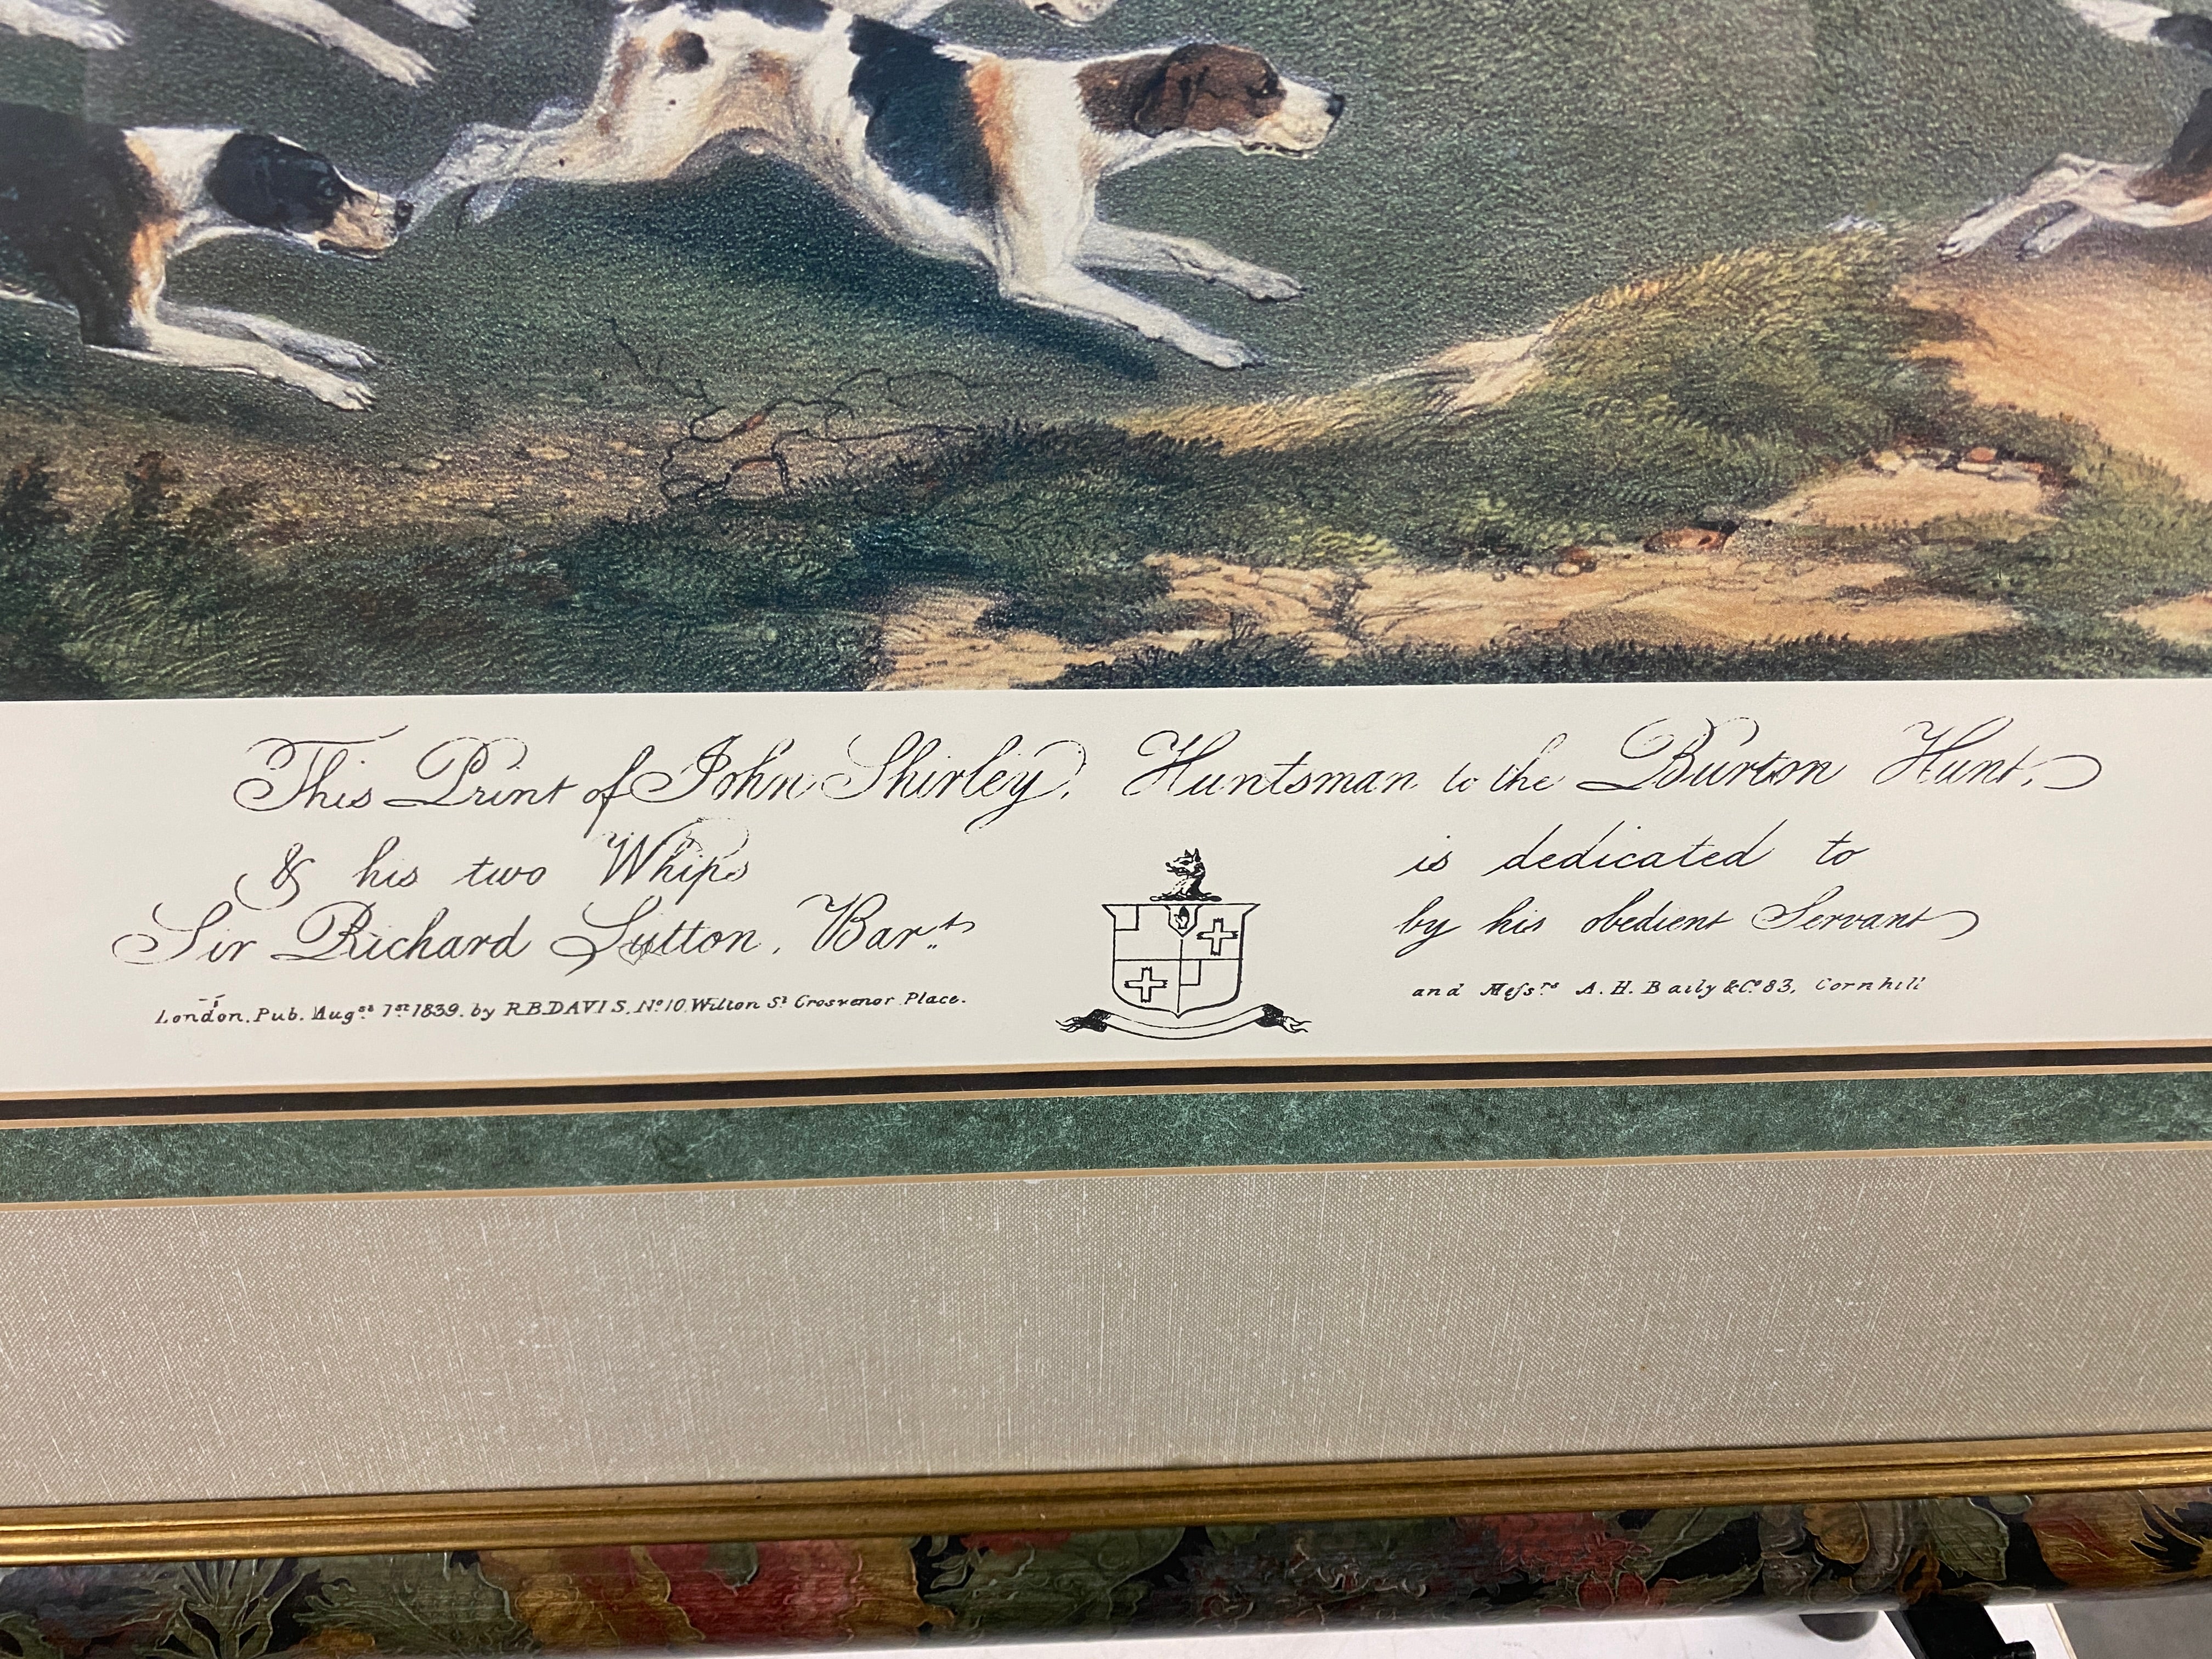 This Print of John Shirley, Huntsman to the Burton Hunt,
& his two Whips is dedicated to
Sir Richard Sutton, Bar.t by his obedient Servant
London. Pub. Aug.st 1st 1839. by R.B. DAVIS. No. 10 Wilton St. Grosvenor Place. and Messrs A. H. Baily & Co. 83, Cornhill